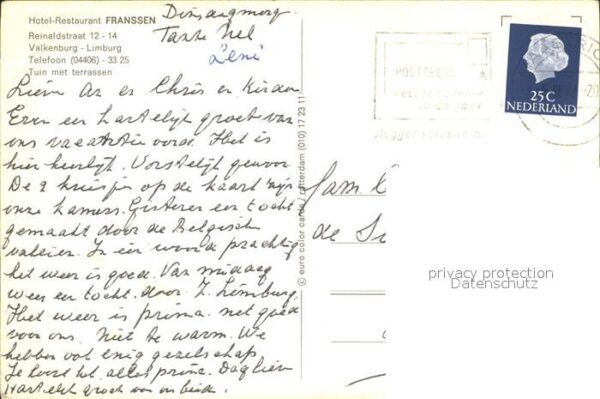 Hotel-Restaurant FRANSSEN
Reinaldstraat 12 - 14
Valkenburg - Limburg
Telefoon (04406) - 33 25
Tuin met terrassen
Dinsdagmorg.
Tante Nel
Leni
Lieve Az en Chris en Kinder
Even een hartelijk groet van
ons vacantie oord. Het is
hier heerlijk. Vorstelijk gewoon
De 2 kruisjes op de kaart zijn
onze kamers. Gisteren een tocht
gemaakt door de Belgisch
valeien. In één woord prachtig
het weer is goed. Van middag
weer een tocht door Z. Limburg.
Het weer is prima. net goed
voor ons. Niet te warm. We
hebben ook enig gezelschap
Je hoort het, alles prima. Dag lieve
Hartelijk groet van ons beide.
© euro color cards / rotterdam (010) 17 23 11
POSTTEGEL
25C
NEDERLAND
Fam.
de
privacy protection
Datenschutz